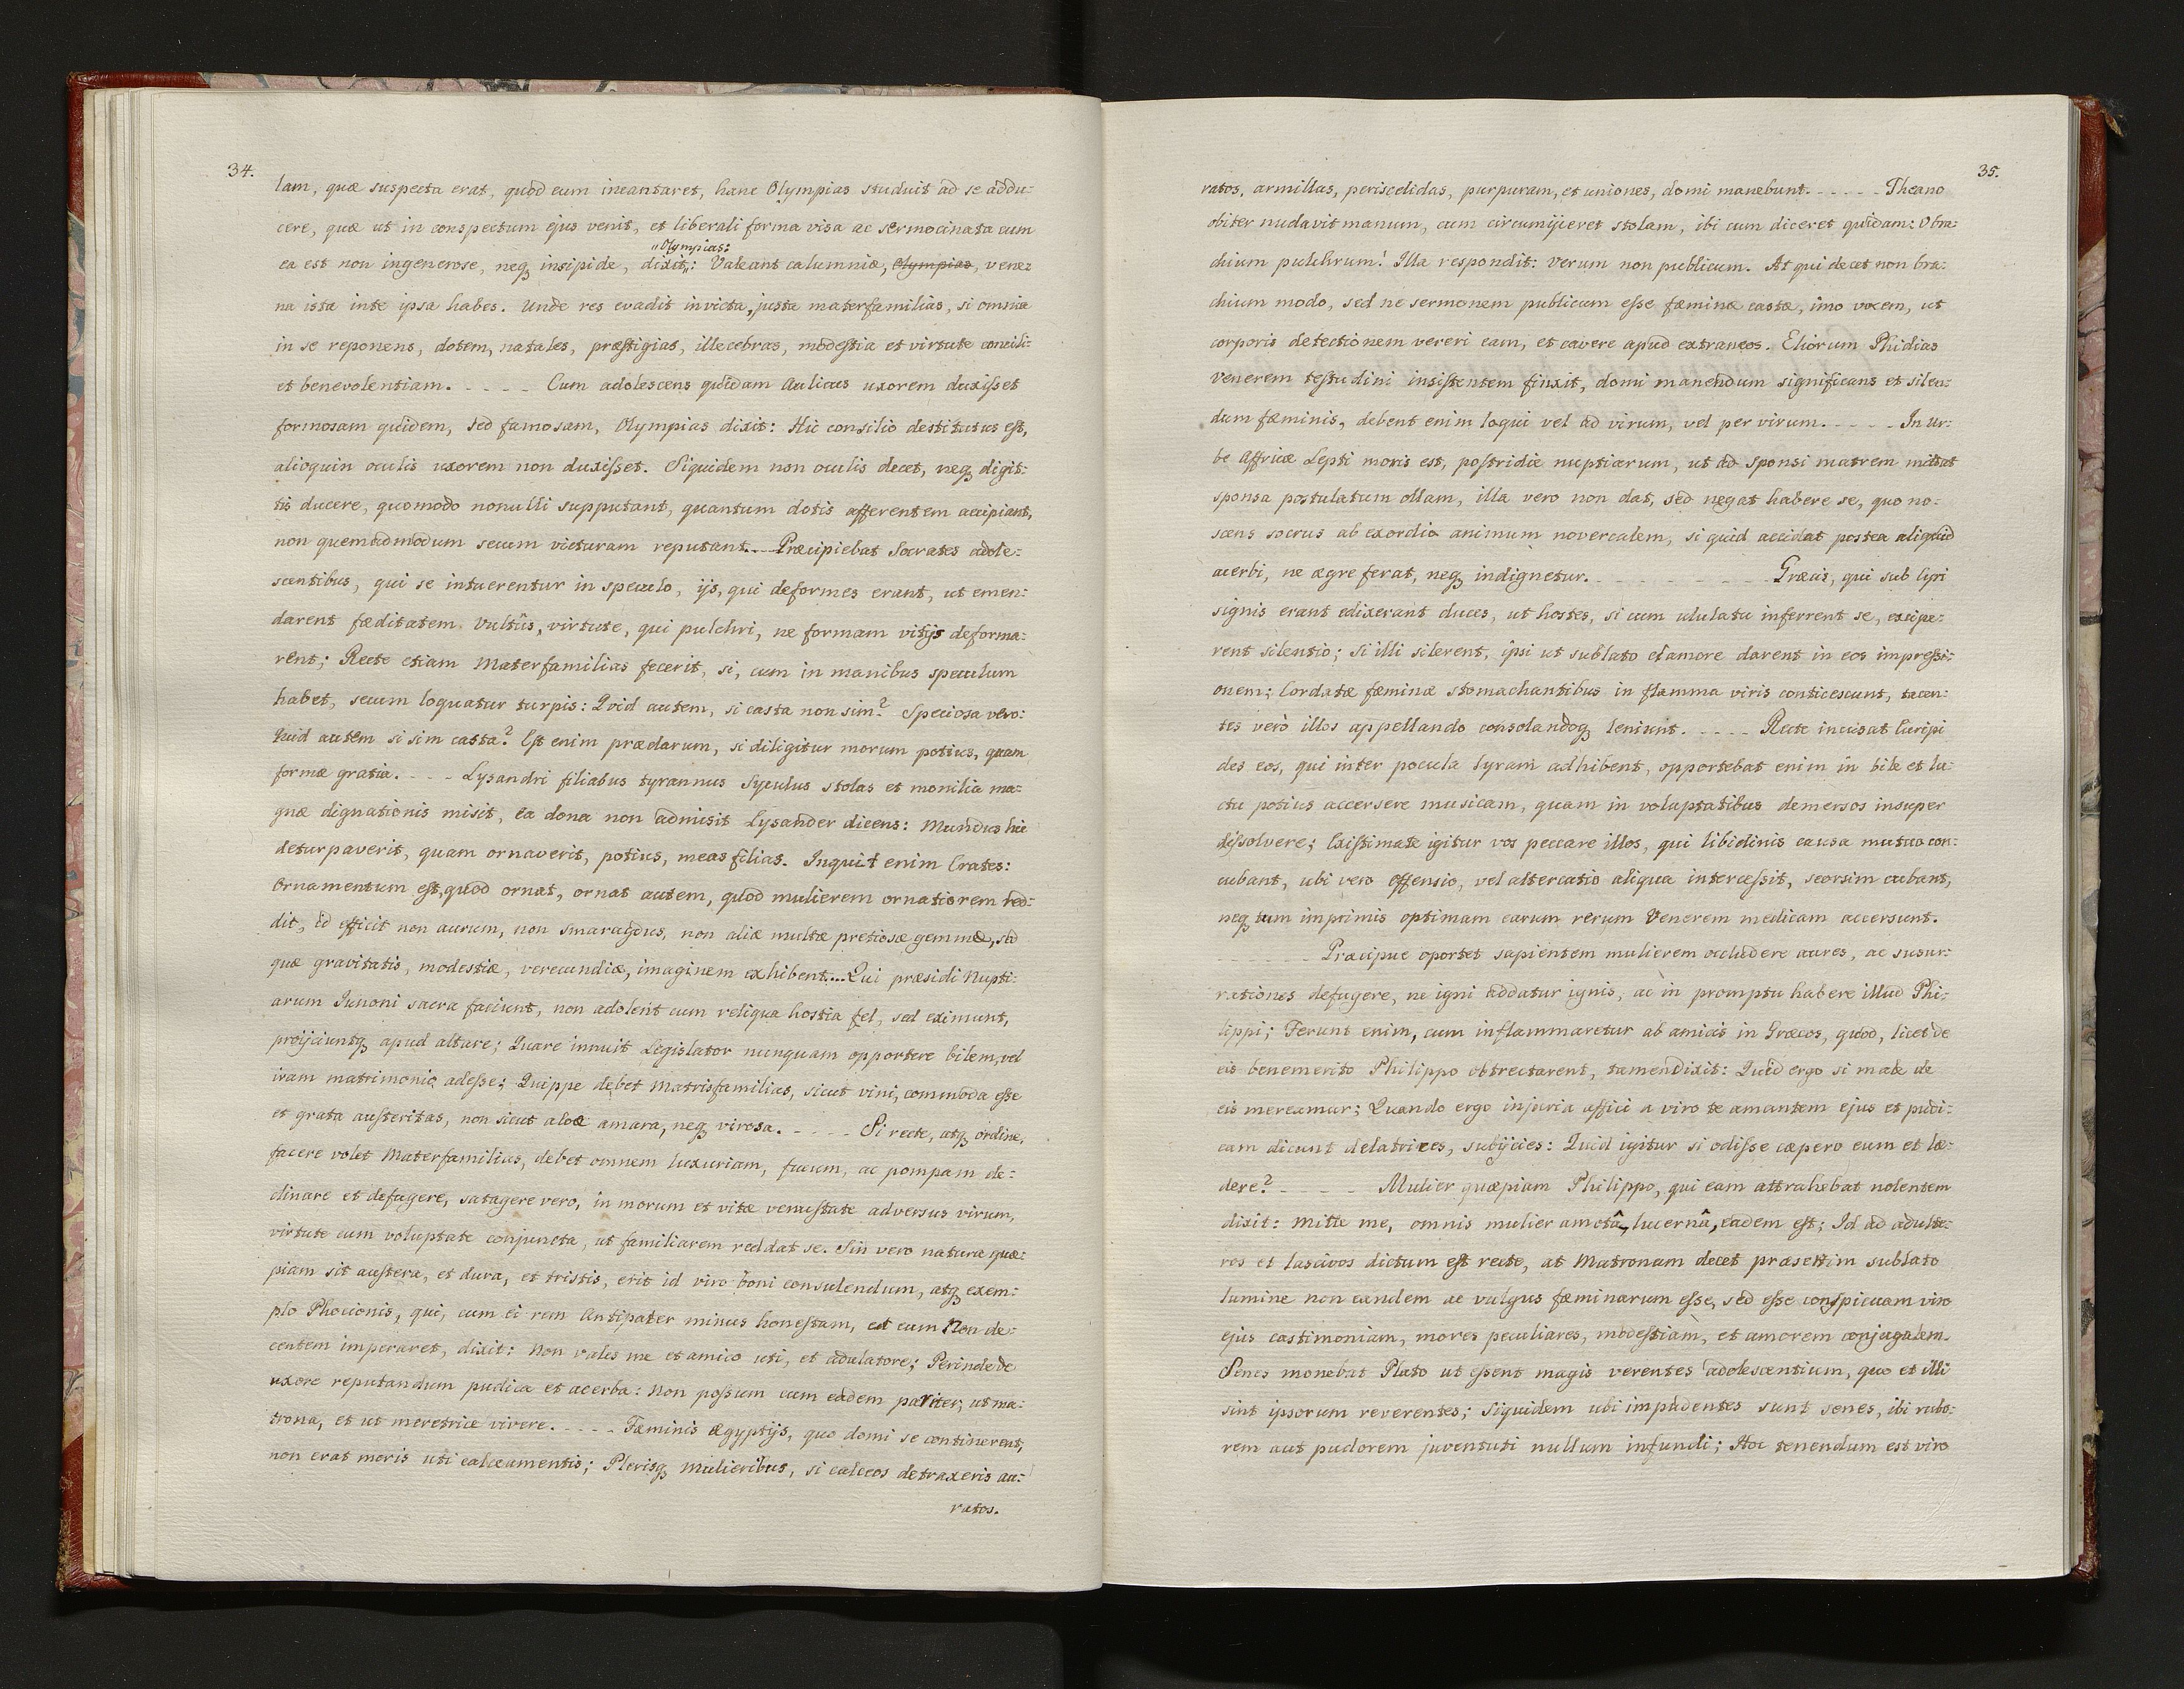 34.
lam, quæ suspecta erat, quod eum incantaret, hanc Olympias studuit ad se addu:
cere, quæ ut in conspectum ejus venit, et liberali forma visa ac sermocinata cum
„Olympias:
ea est non ingenerose, neq insipide, dixit,: Valeant calumniæ, Olympias, vene:
na ista inte ipsa habes. Unde res evadit invicta, justa materfamilias, si omnia
in se reponens, dotem, natales, præstigias, illecebras, modestia et virtute concili:
et benevolentiam. _ _ _ _ Cum adolescens quidam Aulicus uxorem duxisset
formosam quidem, sed famosam, Olympias dixit: Hic consilio destitutus est,
alioquin oculis uxorem non duxisset. Siquidem non oculis decet, neq digit:
tis ducere, quomodo nonulli supputant, quantum dotis afferentem accipiant,
non quemadmodum secum victuram reputant._ _ _ Præcipiebat Socrates adole:
scentibus, qui se intuerentur in speculo, ijs, qui deformes erant, ut emen:
darent fæditatem vultûs, virtute, qui pulchri, ne formam vitijs deforma:
rent; Recte etiam Materfamilias fecerit, si, cum in manibus speculum
habet, secum loquatur turpis: Qvid autem, si casta non sim? Speciosa vero:
Quid autem si sim casta? Est enim præclarum, si diligitur morum potius, quam
formæ gratia. _ _ _ Lysandri filiabus tyrannus Syculus stolas et monilia ma:
gnæ dignationis misit, ea dona non admisit Lysander dicens: Mundus hic
deturpaverit, quam ornaverit, potius, meas filias. Inquit enim Crates:
Ornamentum est, quod ornat, ornat autem, quod mulierem ornatiorem red:
dit, id efficit non aurum, non smaragdus, non aliæ multæ pretiosæ gemmæ, sed
quæ gravitatis, modestiæ, verecundiæ, imaginem exhibent.... Qui præsidi Nupti:
arum Iunoni sacra faciunt, non adolent cum reliqua hostia fel, sed eximunt,
proijciuntq apud altare; Quare innuit Legislator nunquam opportere bilem, vel
iram matrimonio adesse; Quippe debet Matrisfamilias, sicut vini, commoda esse
et grata austeritas, non sicut aloæ amara, neq virosa. _ _ _ _ Si recte, atq ordine,
facere volet Materfamilias, debet omnem luxuriam, fucum, ac pompam de:
clinare et defugere, satagere vero, in morum et vitæ venustate adversus virum,
virtute cum voluptate conjuncta, ut familiarem reddat se. Sin vero natura quæ:
piam sit austera, et dura, et tristis, erit id viro boni consulendum, atq exem:
plo Phocionis, qui, cum ei rem Antipater minus honestam, et eum non de:
centem imperaret, dixit: Non vales me et amico uti, et adulatore; Perinde de
uxore reputandum pudica et acerba: Non possum cum eadem pariter, ut ma:
trona, et ut meretrice vivere. _ _ _ _ Fæminis Ægyptijs, quo domi se continerent,
non erat moris uti calceamentis; Plerisq Mulieribus, si calceos detraxeris au:
ratos.
35.
ratos, armillas, periscelidas, purpuram, et uniones, domi manebunt. _ _ _ _ _ Theano
obiter nudavit manum, cum circumijceret stolam, ibi cum diceret quidam: O bra:
chium pulchrum! Illa respondit: Verum non publicum. At qui decet non bra:
chium modo, sed ne sermonem publicum esse fæminæ castæ, imo vocem, ut
corporis detectionem vereri eam, et cavere apud extraneos. Eliorum Phidias
Venerem testudini insistentem finxit, domi manendum significans et silen:
dum fæminis, debent enim loqui vel ad virum, vel per virum. _ _ _ _ In ur:
be Affricæ Lepti moris est, postridie nuptiarum, ut ad sponsi matrem mittat
sponsa postulatum ollam, illa vero non dat, sed negat habere se, quo no:
scens socrus ab exordio animum novercalem, si quid accidat postea aliquid
acerbi, ne ægre ferat, neq indignetur. _ _ _ _ _ _ _ _ Græcis, qui sub Cyri
signis erant edixerant duces, ut hostes, si cum ululatu inferrent se, excipe:
rent silentio; si illi silerent, ipsi ut sublato clamore darent in eos impressi:
onem; Cordatæ fæminæ stomachantibus in flamma viris conticescunt, tacen:
tes verò illos appellando consolandoq leniunt. _ _ _ _ Recte incusat Euripi
des eos, qui inter pocula lyram adhibent, opportebat enim in bile et lu:
ctu potius accersere musicam, quam in voluptatibus demersos insuper
dissolvere; Existimate igitur vos peccare illos, qui libidinis causa mutua con:
cubant, ubi vero offensio, vel altercatio aliqua intercessit, seorsim cubant,
neq tum imprimis optimam earum rerum Venerem medicam accersunt.
_ _ _ _ _ _ Præcipue oportet sapientem mulierem occludere aures, ac susur:
rationes defugere, ne igni addatur ignis, ac in promptu habere illud Phi:
lippi; Ferunt enim, cum inflammaretur ab amicis in Græcos, quod, licet de
eis benemerito Philippo obtrectarent, tamen dixit: Quid ergo si male de
eis mereamur; Quando ergo injuria affici a viro te amantem ejus et pudi:
cam dicunt delatrices, subijcies: Quid igitur si odisse cæpero eum et læ:
dere? _ _ _ _ Mulier quæpiam Philippo, qui eam attrahebat nolentem
dixit: Mitte me, omnis mulier amotâ, lucernâ, eadem est; Id ad adulte:
ros et lascivos dictum est recte, at Matronam decet præsertim sublato
lumine non eandem ac vulgus fæminarum esse, sed esse conspicuam viro
ejus castimoniam, mores peculiares, modestiam, et amorem conjugalem.
Senes monebat Plato ut essent magis verentes adolescentium, quo et illi
sint ipsorum reverentes; siquidem ubi impudentes sunt senes, ibi rubo:
rem aut pudorem juventuti nullum infundi; Hoc tenendum est viro